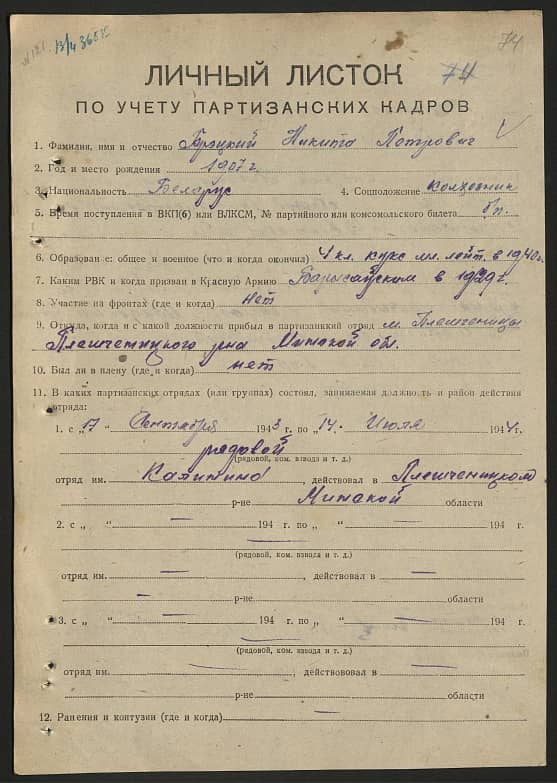 74
ЛИЧНЫЙ ЛИСТОК 74
ПО УЧЕТУ ПАРТИЗАНСКИХ КАДРОВ
1. Фамилия, имя и отчество Никита Петрович
2. Год и место рождения 1907 г.
3. Национальность Беларус 4. Соцположение колхозник
5. Время поступления в ВКП(б) или ВЛКСМ, № партийного или комсомольского билета бп.
6. Образование: общее и военное (что и когда окончил) 4 кл. курс мл. лейт. в 1940 г.
7. Каким РВК и когда призван в Красную Армию Барысаўском в 1929 г.
8. Участие на фронтах (где и когда) нет
9. Откуда, когда и с какой должности прибыл в партизанкий отряд м. Плещеницы
Плещеницкого рна Минской обл.
10. Был ли в плену (где и когда) нет
11. В каких партизанских отрядах (или группах) состоял, занимаемая должность и район действия
отряда:
1. с „17“ Сентября 1943 г. по „14. Июля 1944 г.
рядовой
(рядовой, ком. взвода и т. д.)
отряд им. Калинина, действовал в Плещеницком
р-не Минской области
2. с „ “ — 194 г. по „ “ — 194 г.
—
(рядовой, ком. взвода и т. д.)
отряд им. —, действовал в —
— р-не — области
3. с „ “ — 194 г. по „ “ — 194 г.
—
(рядовой, ком. взвода и т. д.)
отряд им. —, действововал в —
— р-не — области
12. Ранения и контузии (где и когда) —